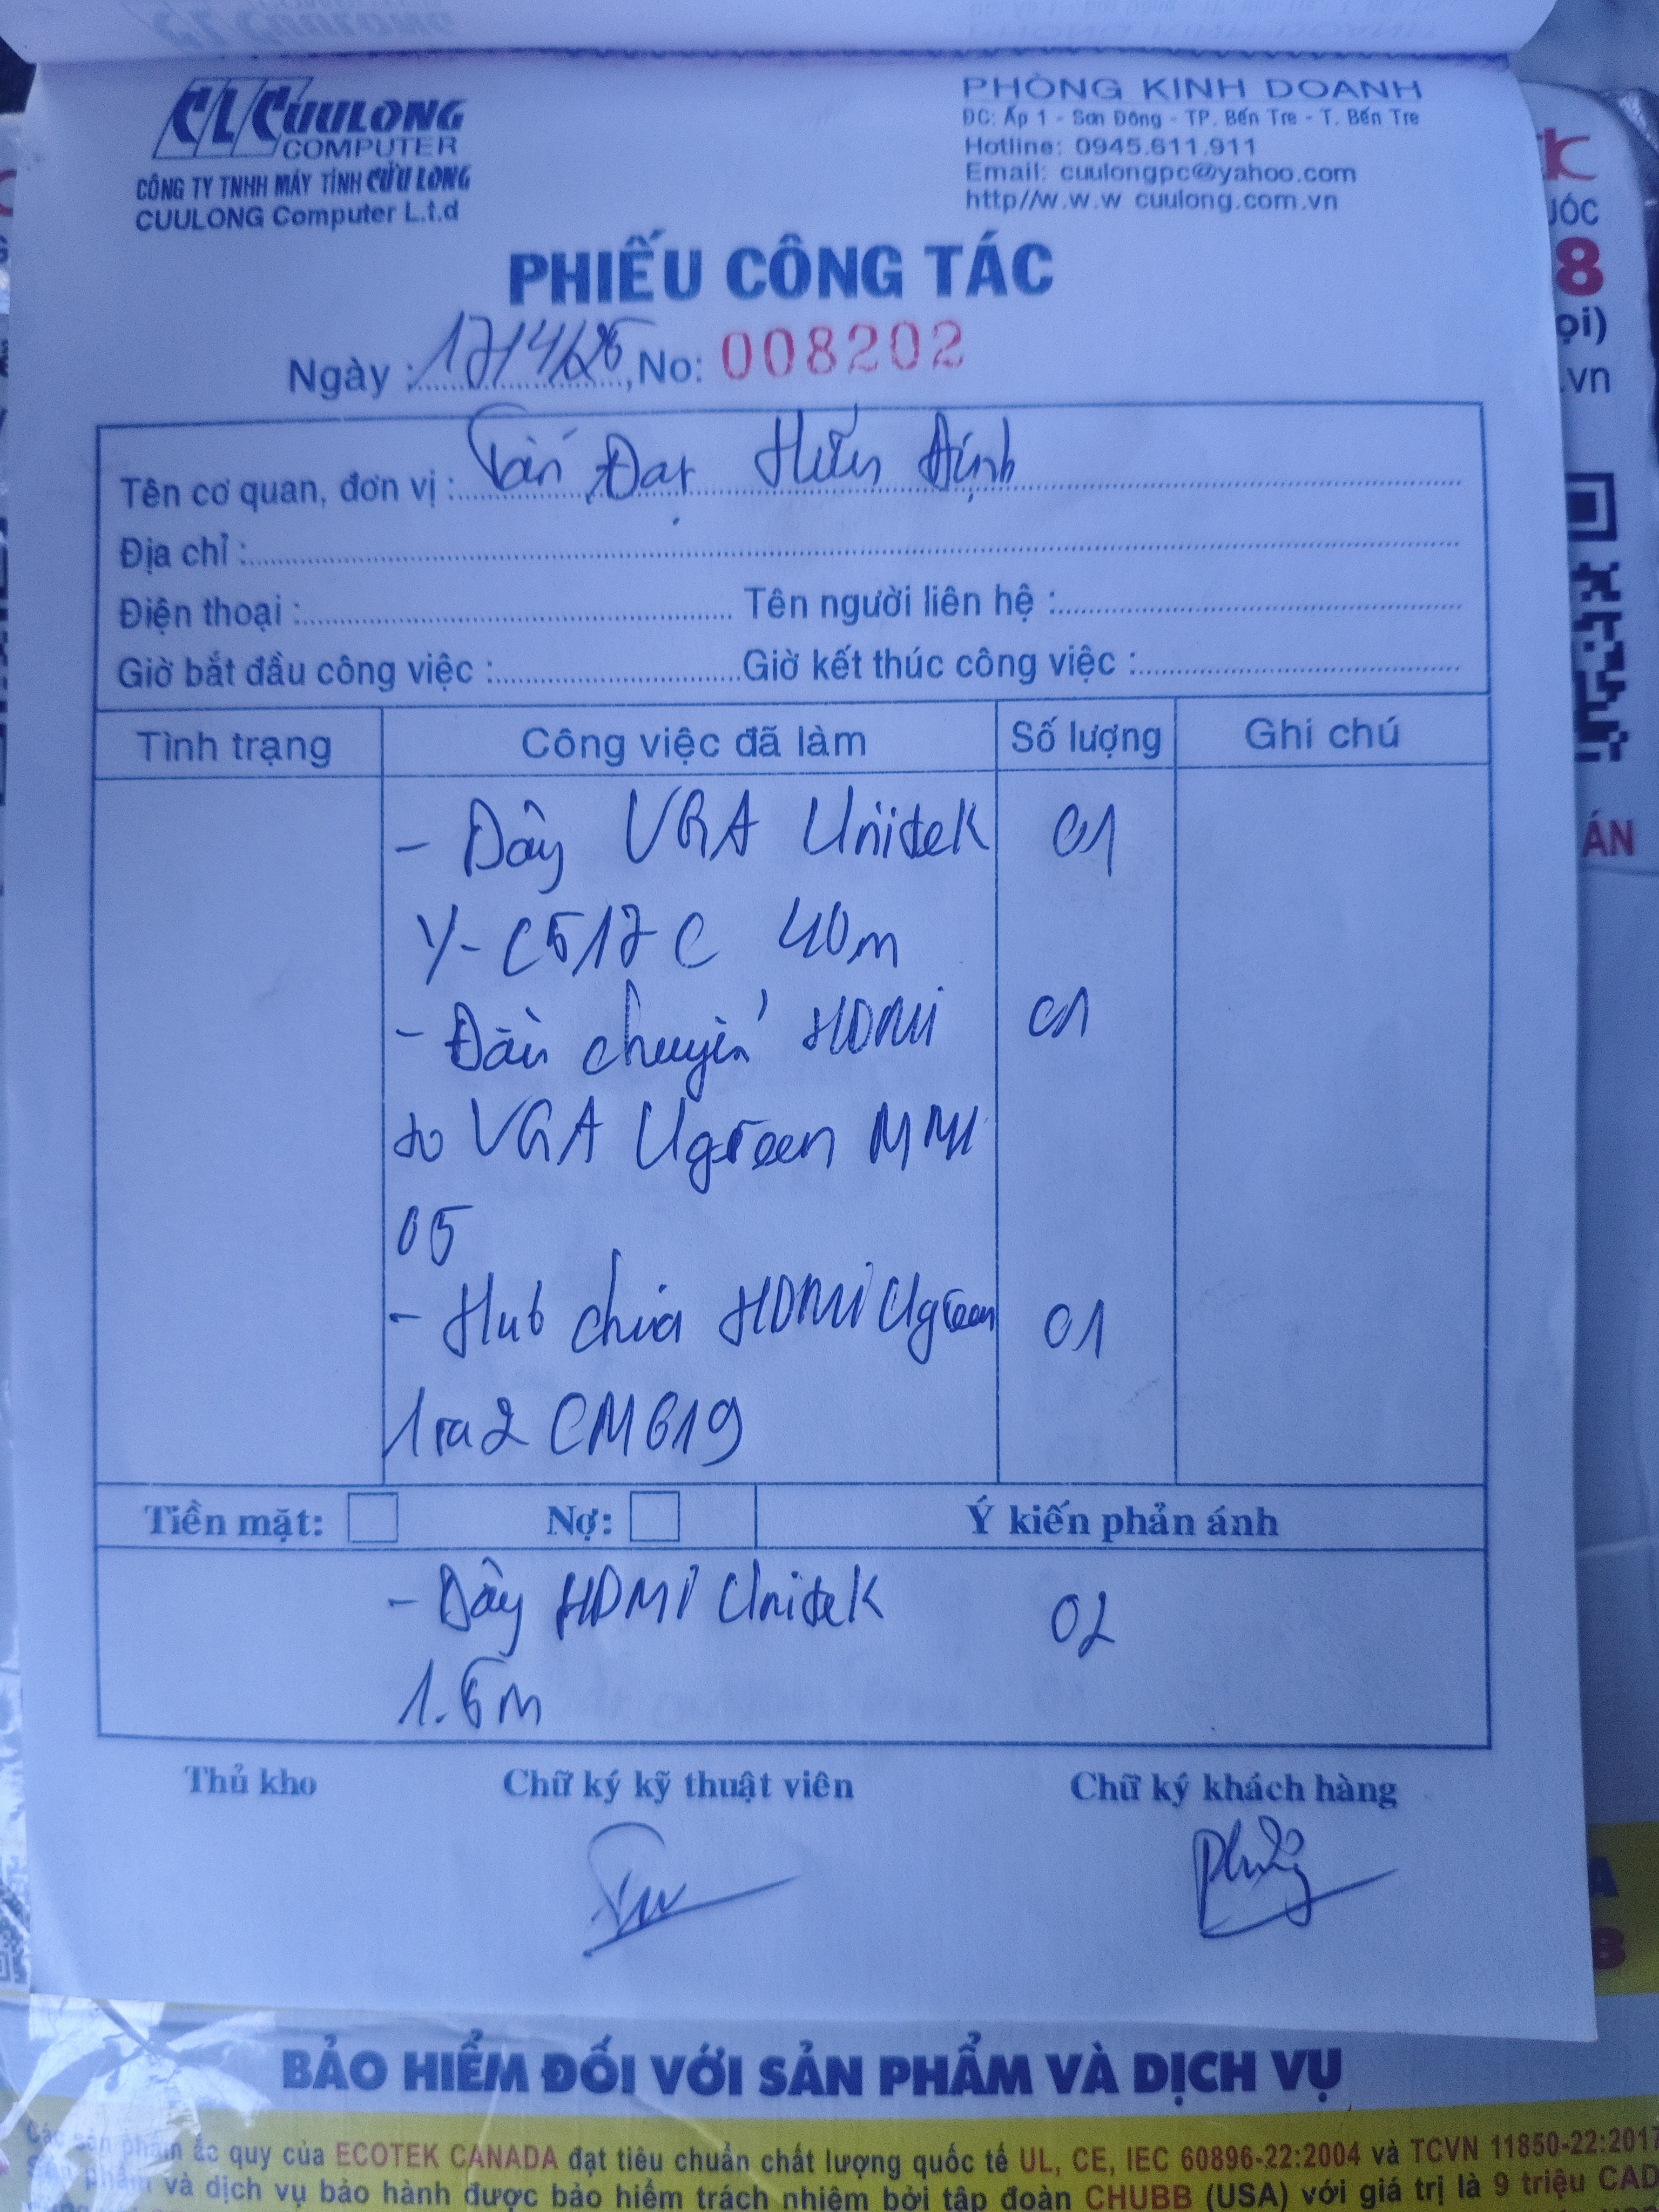 CLCUULONG
COMPUTER
CÔNG TY TNHH MÁY TÍNH CỬU LONG
CUULONG Computer L.t.d
PHÒNG KINH DOANH
ĐC: Ấp 1 - Sơn Đông - TP. Bến Tre - T. Bến Tre
Hotline: 0945.611.911
Email: cuulongpc@yahoo.com
http//w.w.w cuulong.com.vn
PHIẾU CÔNG TÁC
Ngày : 17/4/ No: 008202
Tên cơ quan, đơn vị : Tấn Đạt
Địa chỉ :
Điện thoại : Tên người liên hệ :
Giờ bắt đầu công việc : Giờ kết thúc công việc :
Tình trạng Công việc đã làm Số lượng Ghi chú
- Dây VGA Unitek 01
Y-C517C 40m
- Đầu chuyển HDMI 01
to VGA Ugreen MM
05
- Hub chia HDMI Ugreen 01
1 ra 2 CM619
Tiền mặt: Nợ: Ý kiến phản ánh
- Dây HDMI Unitek 02
1.5m
Thủ kho Chữ ký kỹ thuật viên Chữ ký khách hàng
BẢO HIỂM ĐỐI VỚI SẢN PHẨM VÀ DỊCH VỤ
Các sản phẩm ắc quy của ECOTEK CANADA đạt tiêu chuẩn chất lượng quốc tế UL, CE, IEC 60896-22:2004 và TCVN 11850-22:2017
Sản phẩm và dịch vụ bảo hành được bảo hiểm trách nhiệm bởi tập đoàn CHUBB (USA) với giá trị là 9 triệu CAD
ỌI)
.vn
ÁN